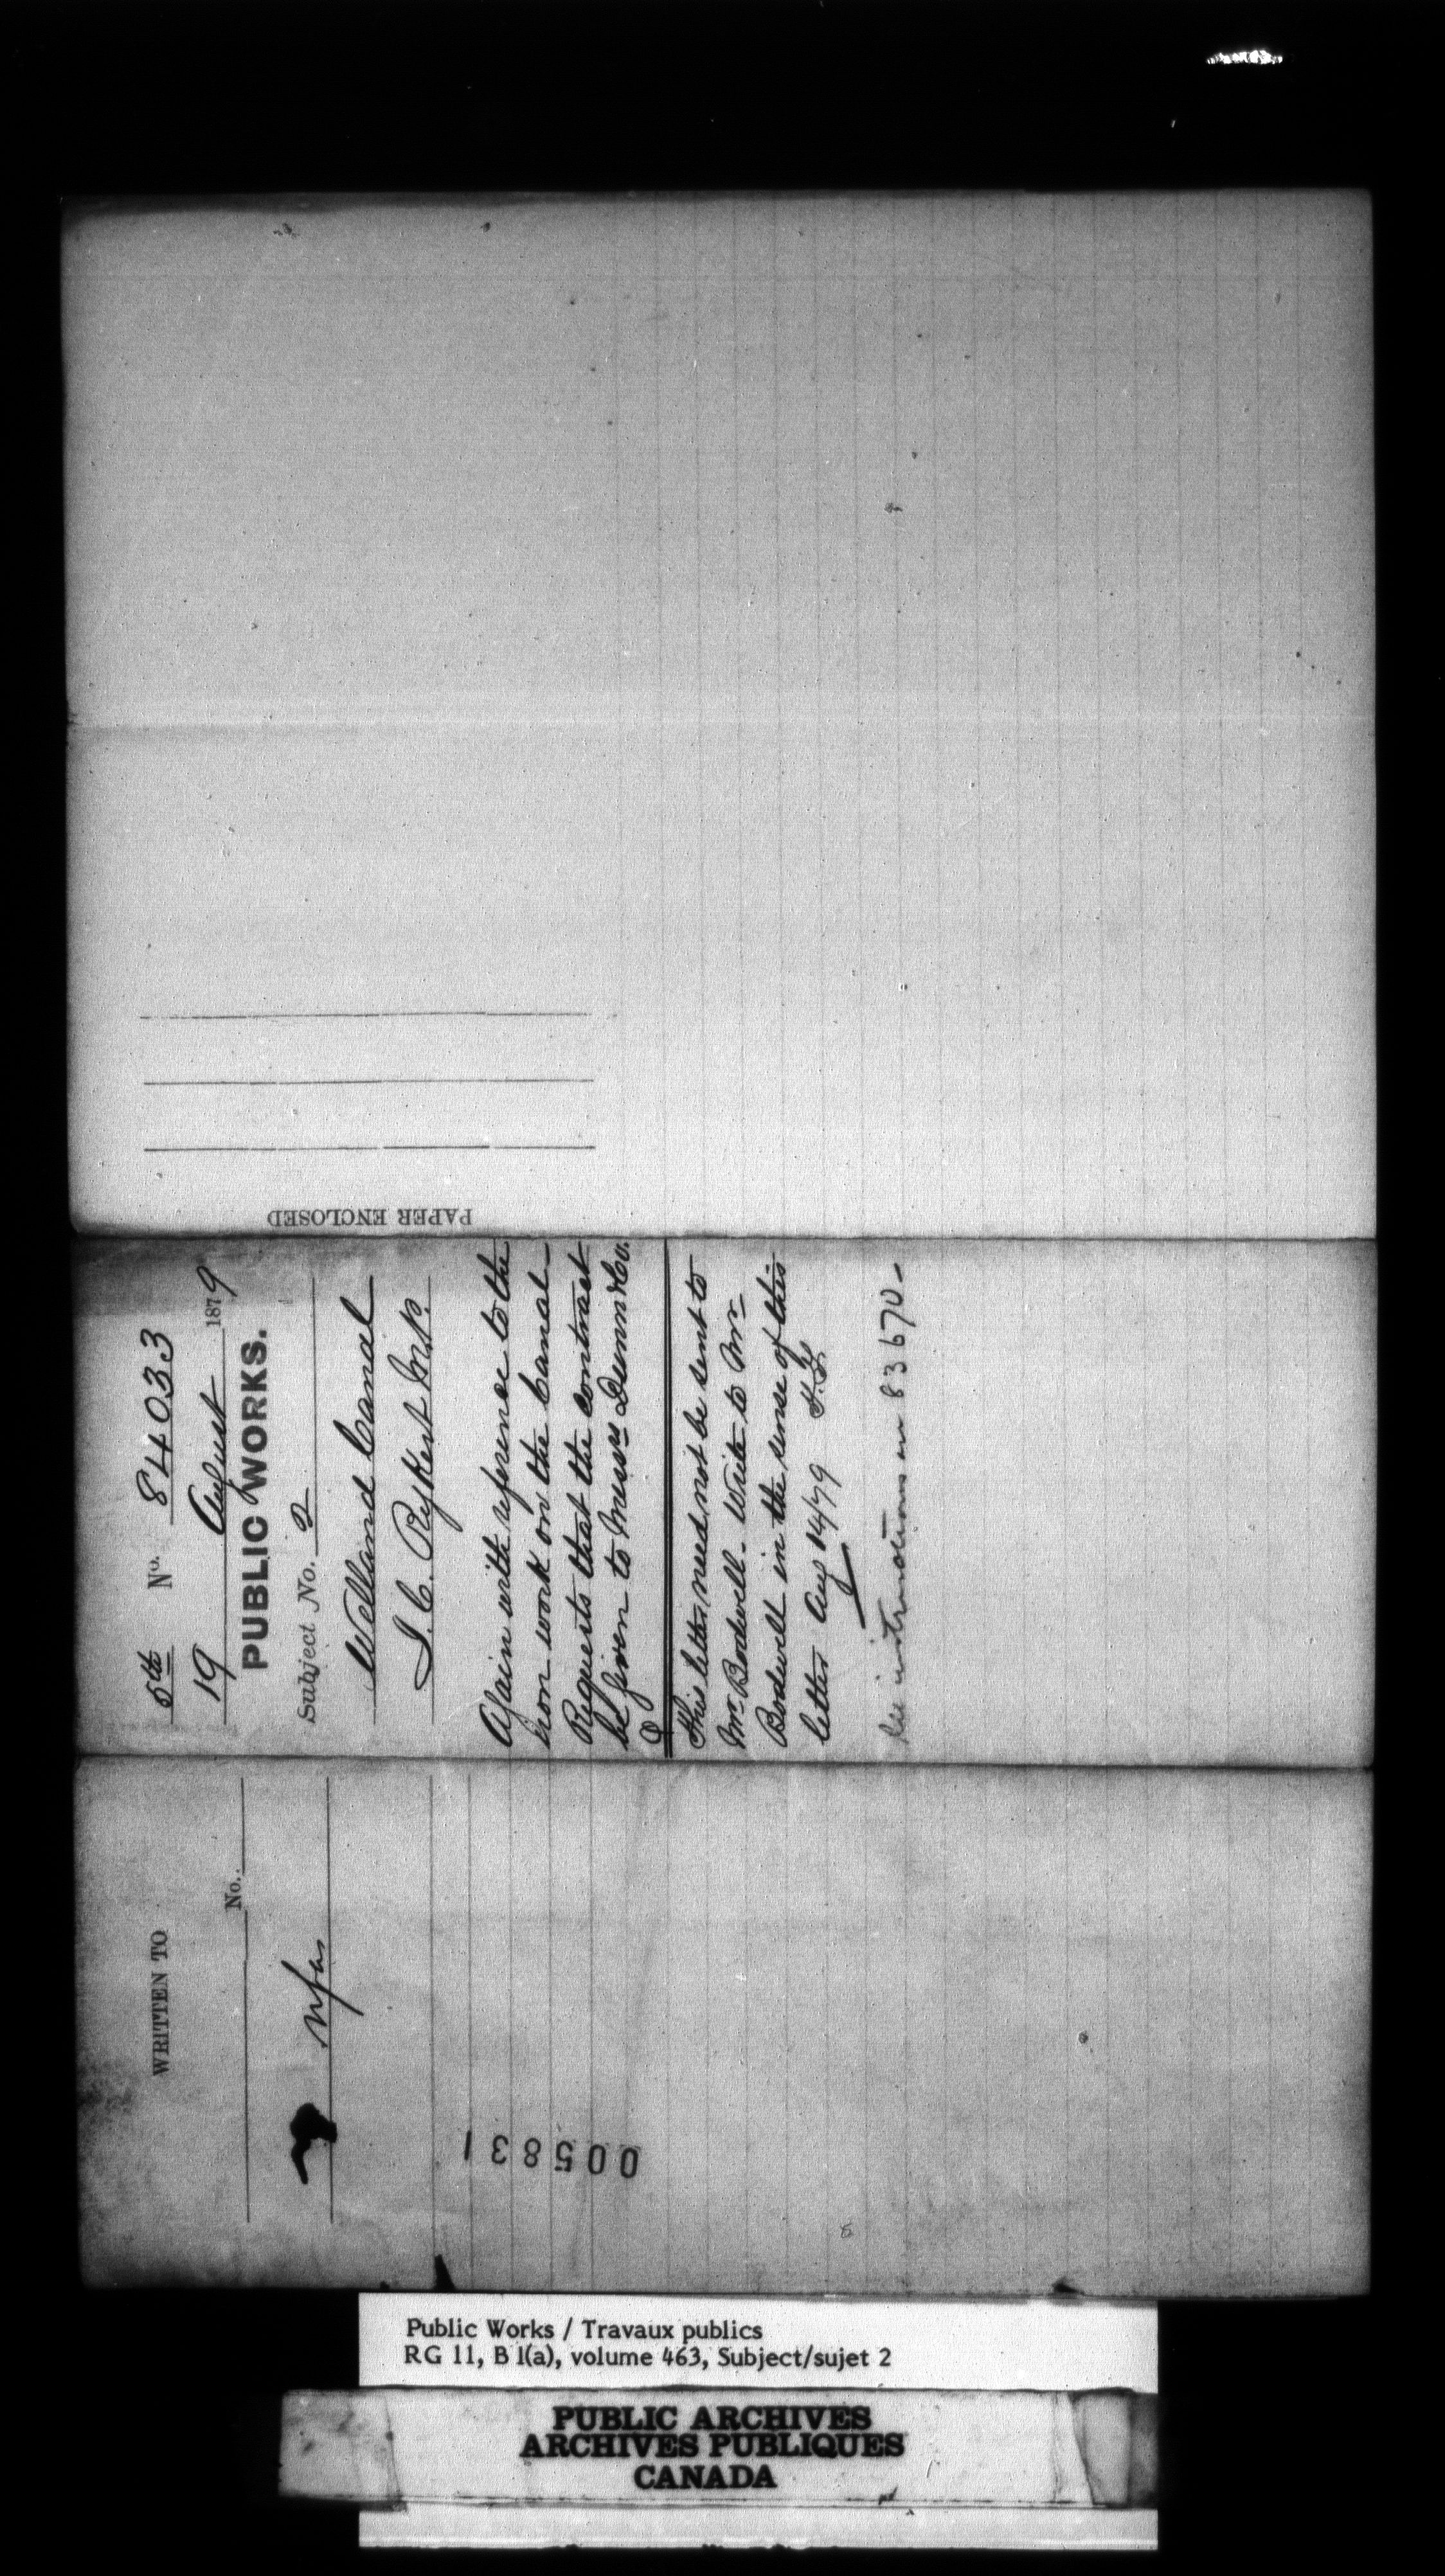 PAPER ENCLOSED
5th No. 84033
19 August 1879
PUBLIC WORKS.
Subject No. 2
Welland Canal
J. C. Rykert M.P.
Again with reference to the
iron work on the Canal –
Requests that the contract
be given to Messrs Dunn & Co.
This letter need not be sent to
Mr. Bodwell – Write to Mr
Bodwell in the sense of this
letter Aug 14/79
See instructions on 83670 –
WRITTEN TO
No.
nfw
005831
Public Works / Travaux publics
RG 11, B 1(a), volume 463, Subject/sujet 2
PUBLIC ARCHIVES
ARCHIVES PUBLIQUES
CANADA